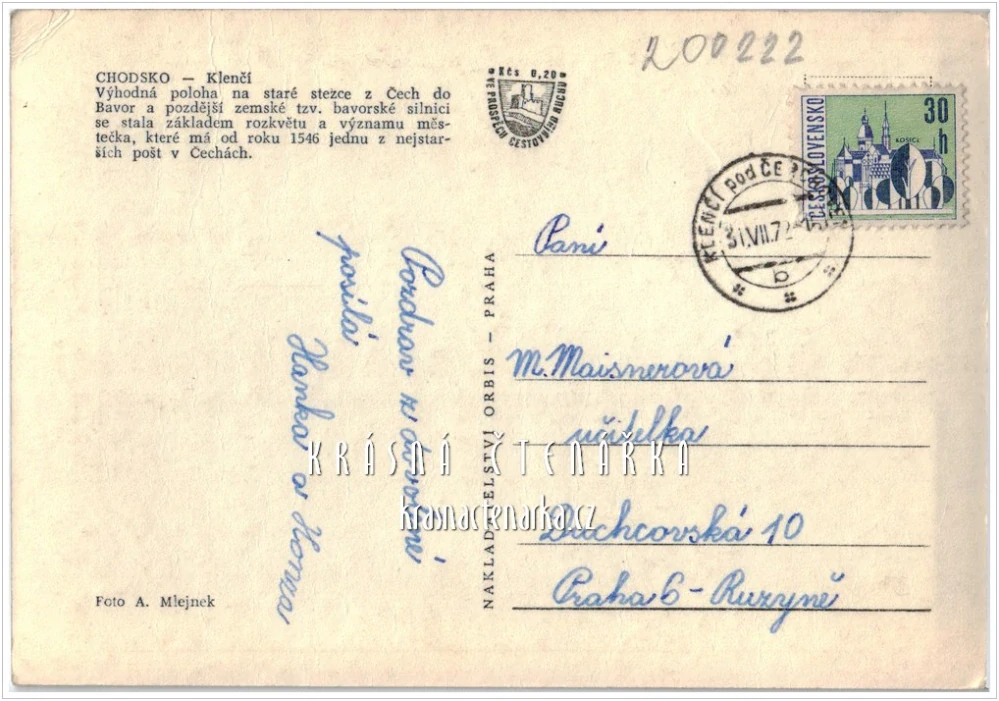 200222
CHODSKO — Klenčí
Výhodná poloha na staré stezce z Čech do
Bavor a pozdější zemské tzv. bavorské silnici
se stala základem rozkvětu a významu měs-
tečka, které má od roku 1546 jednu z nejstar-
ších pošt v Čechách.
Kčs 0,20
VE PROSPĚCH CESTOVNÍHO RUCHU
ČESKOSLOVENSKO
30
h
KOŠICE
KLENČÍ pod ČE
31.VII.72
b
Pozdrav z dovolené
posílá
Hanka a Honza
NAKLADATELSTVÍ ORBIS — PRAHA
Paní
M. Maisnerová
učitelka
Duchcovská 10
Praha 6 - Ruzyně
KRÁSNÁ ČTENÁŘKA
krasnactenarka.cz
Foto A. Mlejnek